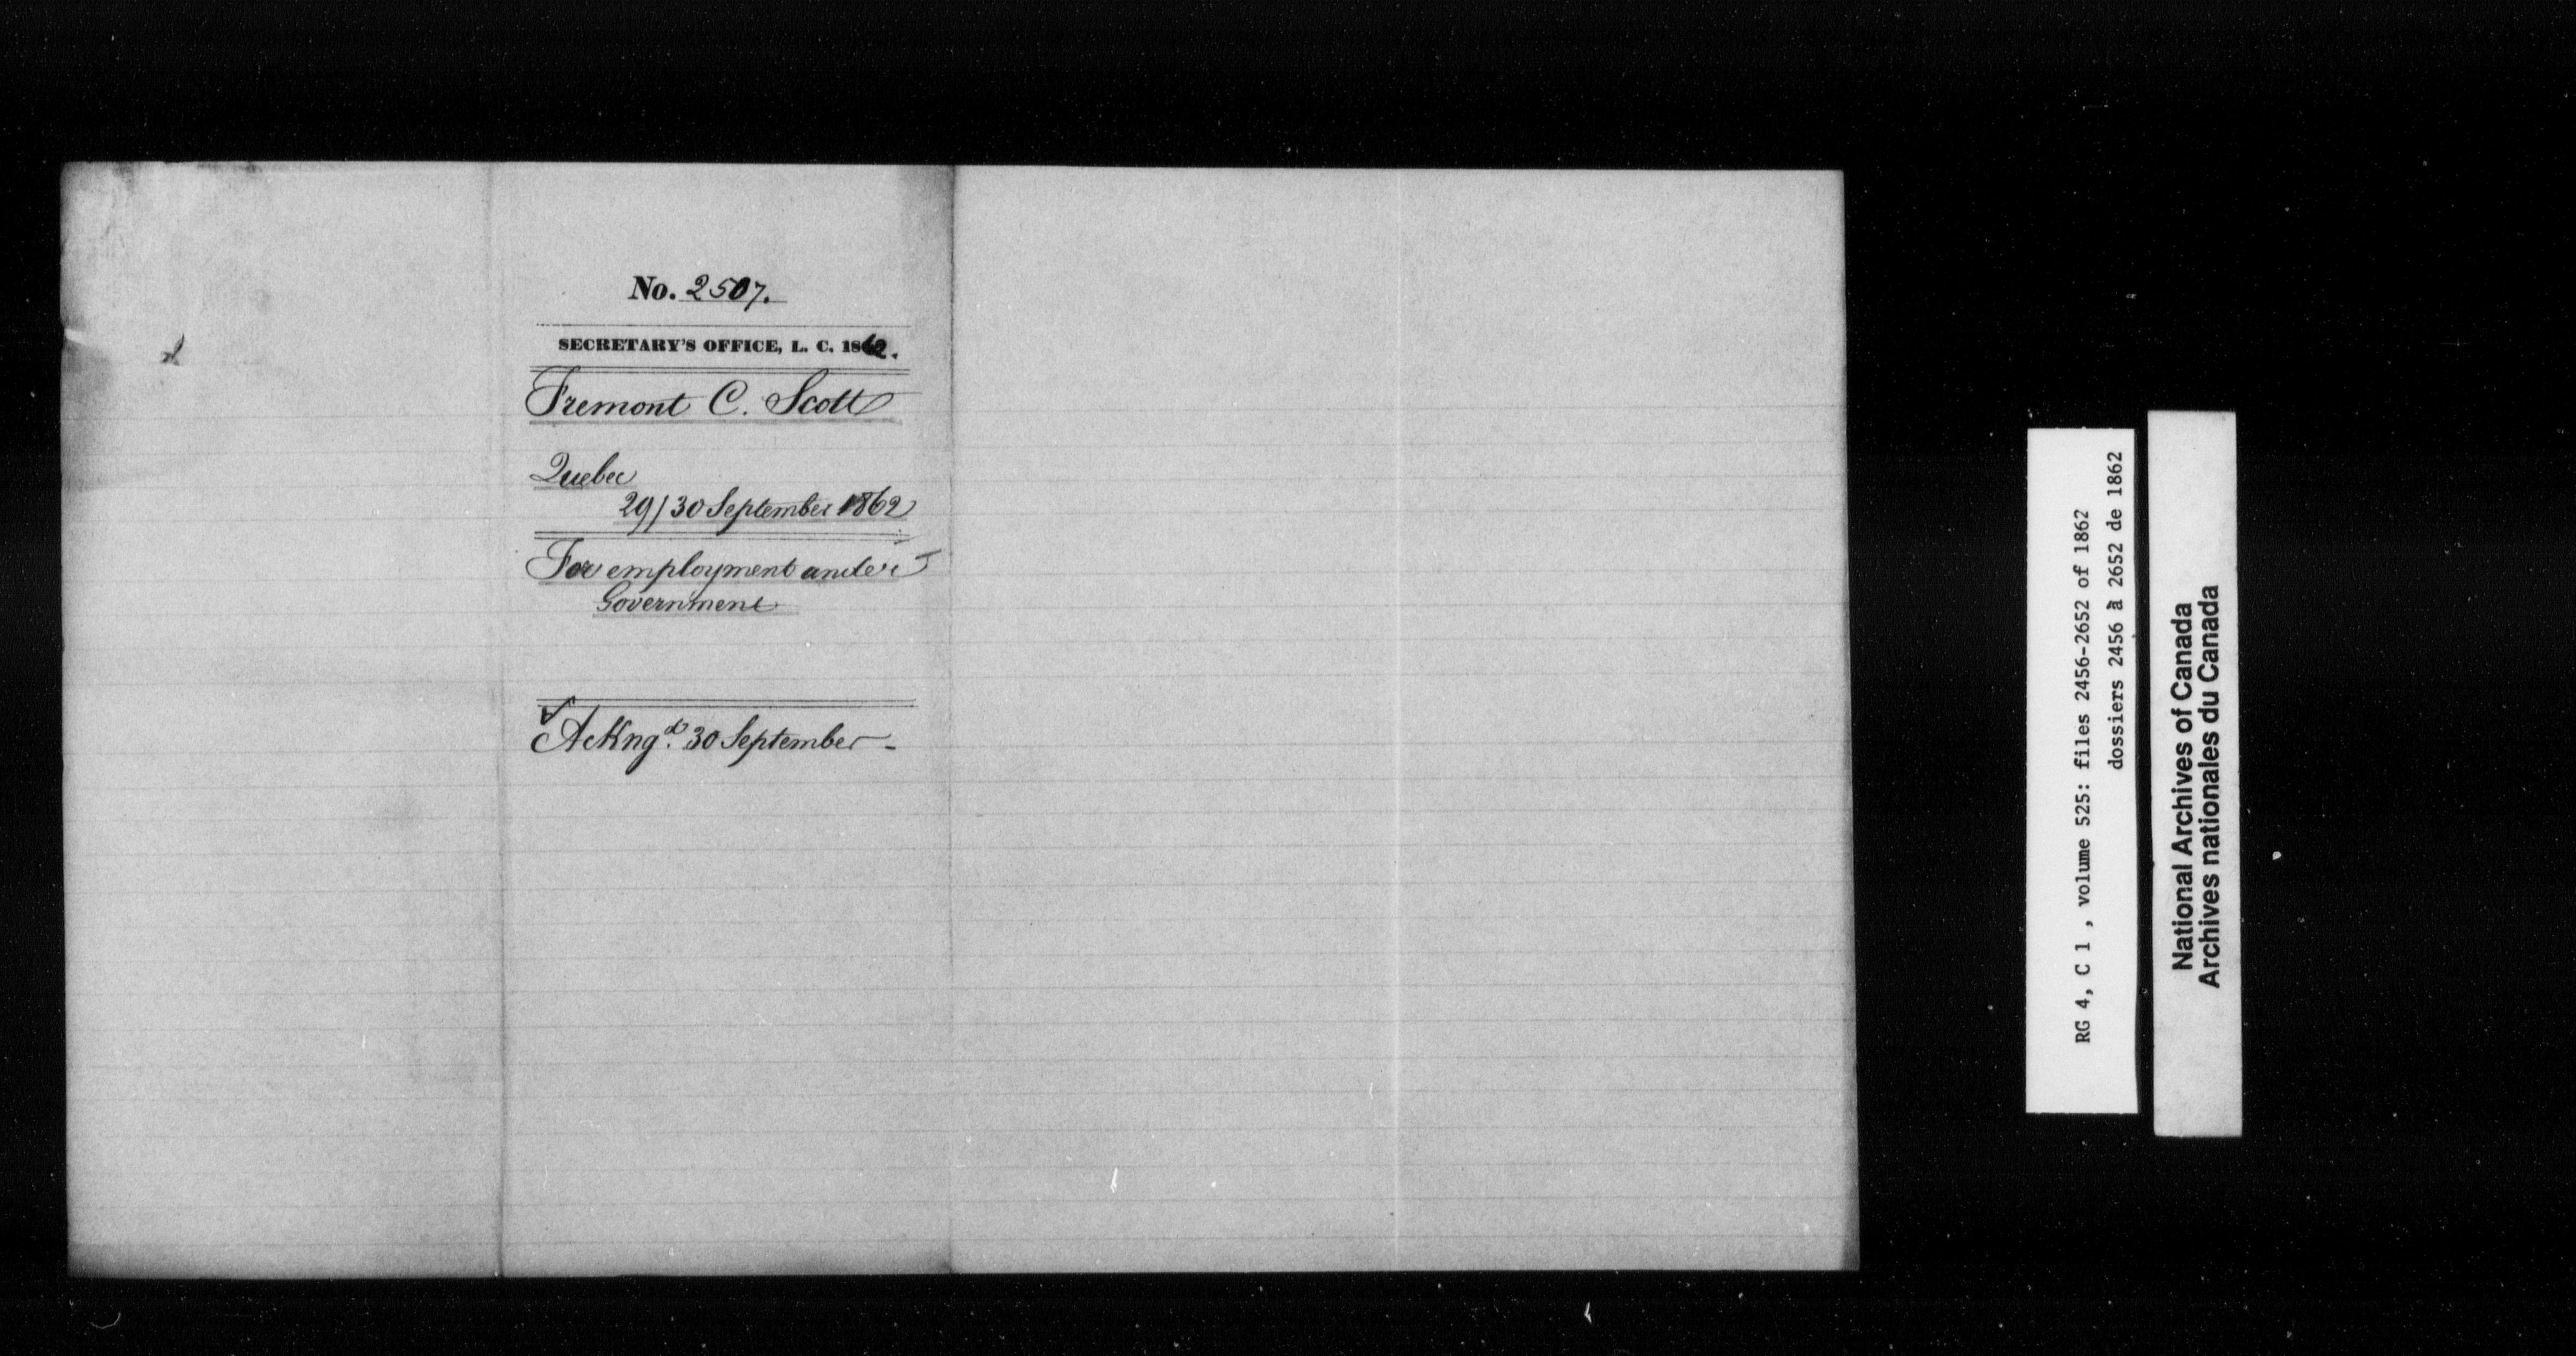 No. 2507.
SECRETARY'S OFFICE, L. C. 1862.
Fremont C. Scott
Quebec
29/30 September 1862
For employment under
Government
Ackngd. 30 September -
RG 4, C 1 , volume 525: files 2456-2652 of 1862
dossiers 2456 à 2652 de 1862
National Archives of Canada
Archives nationales du Canada